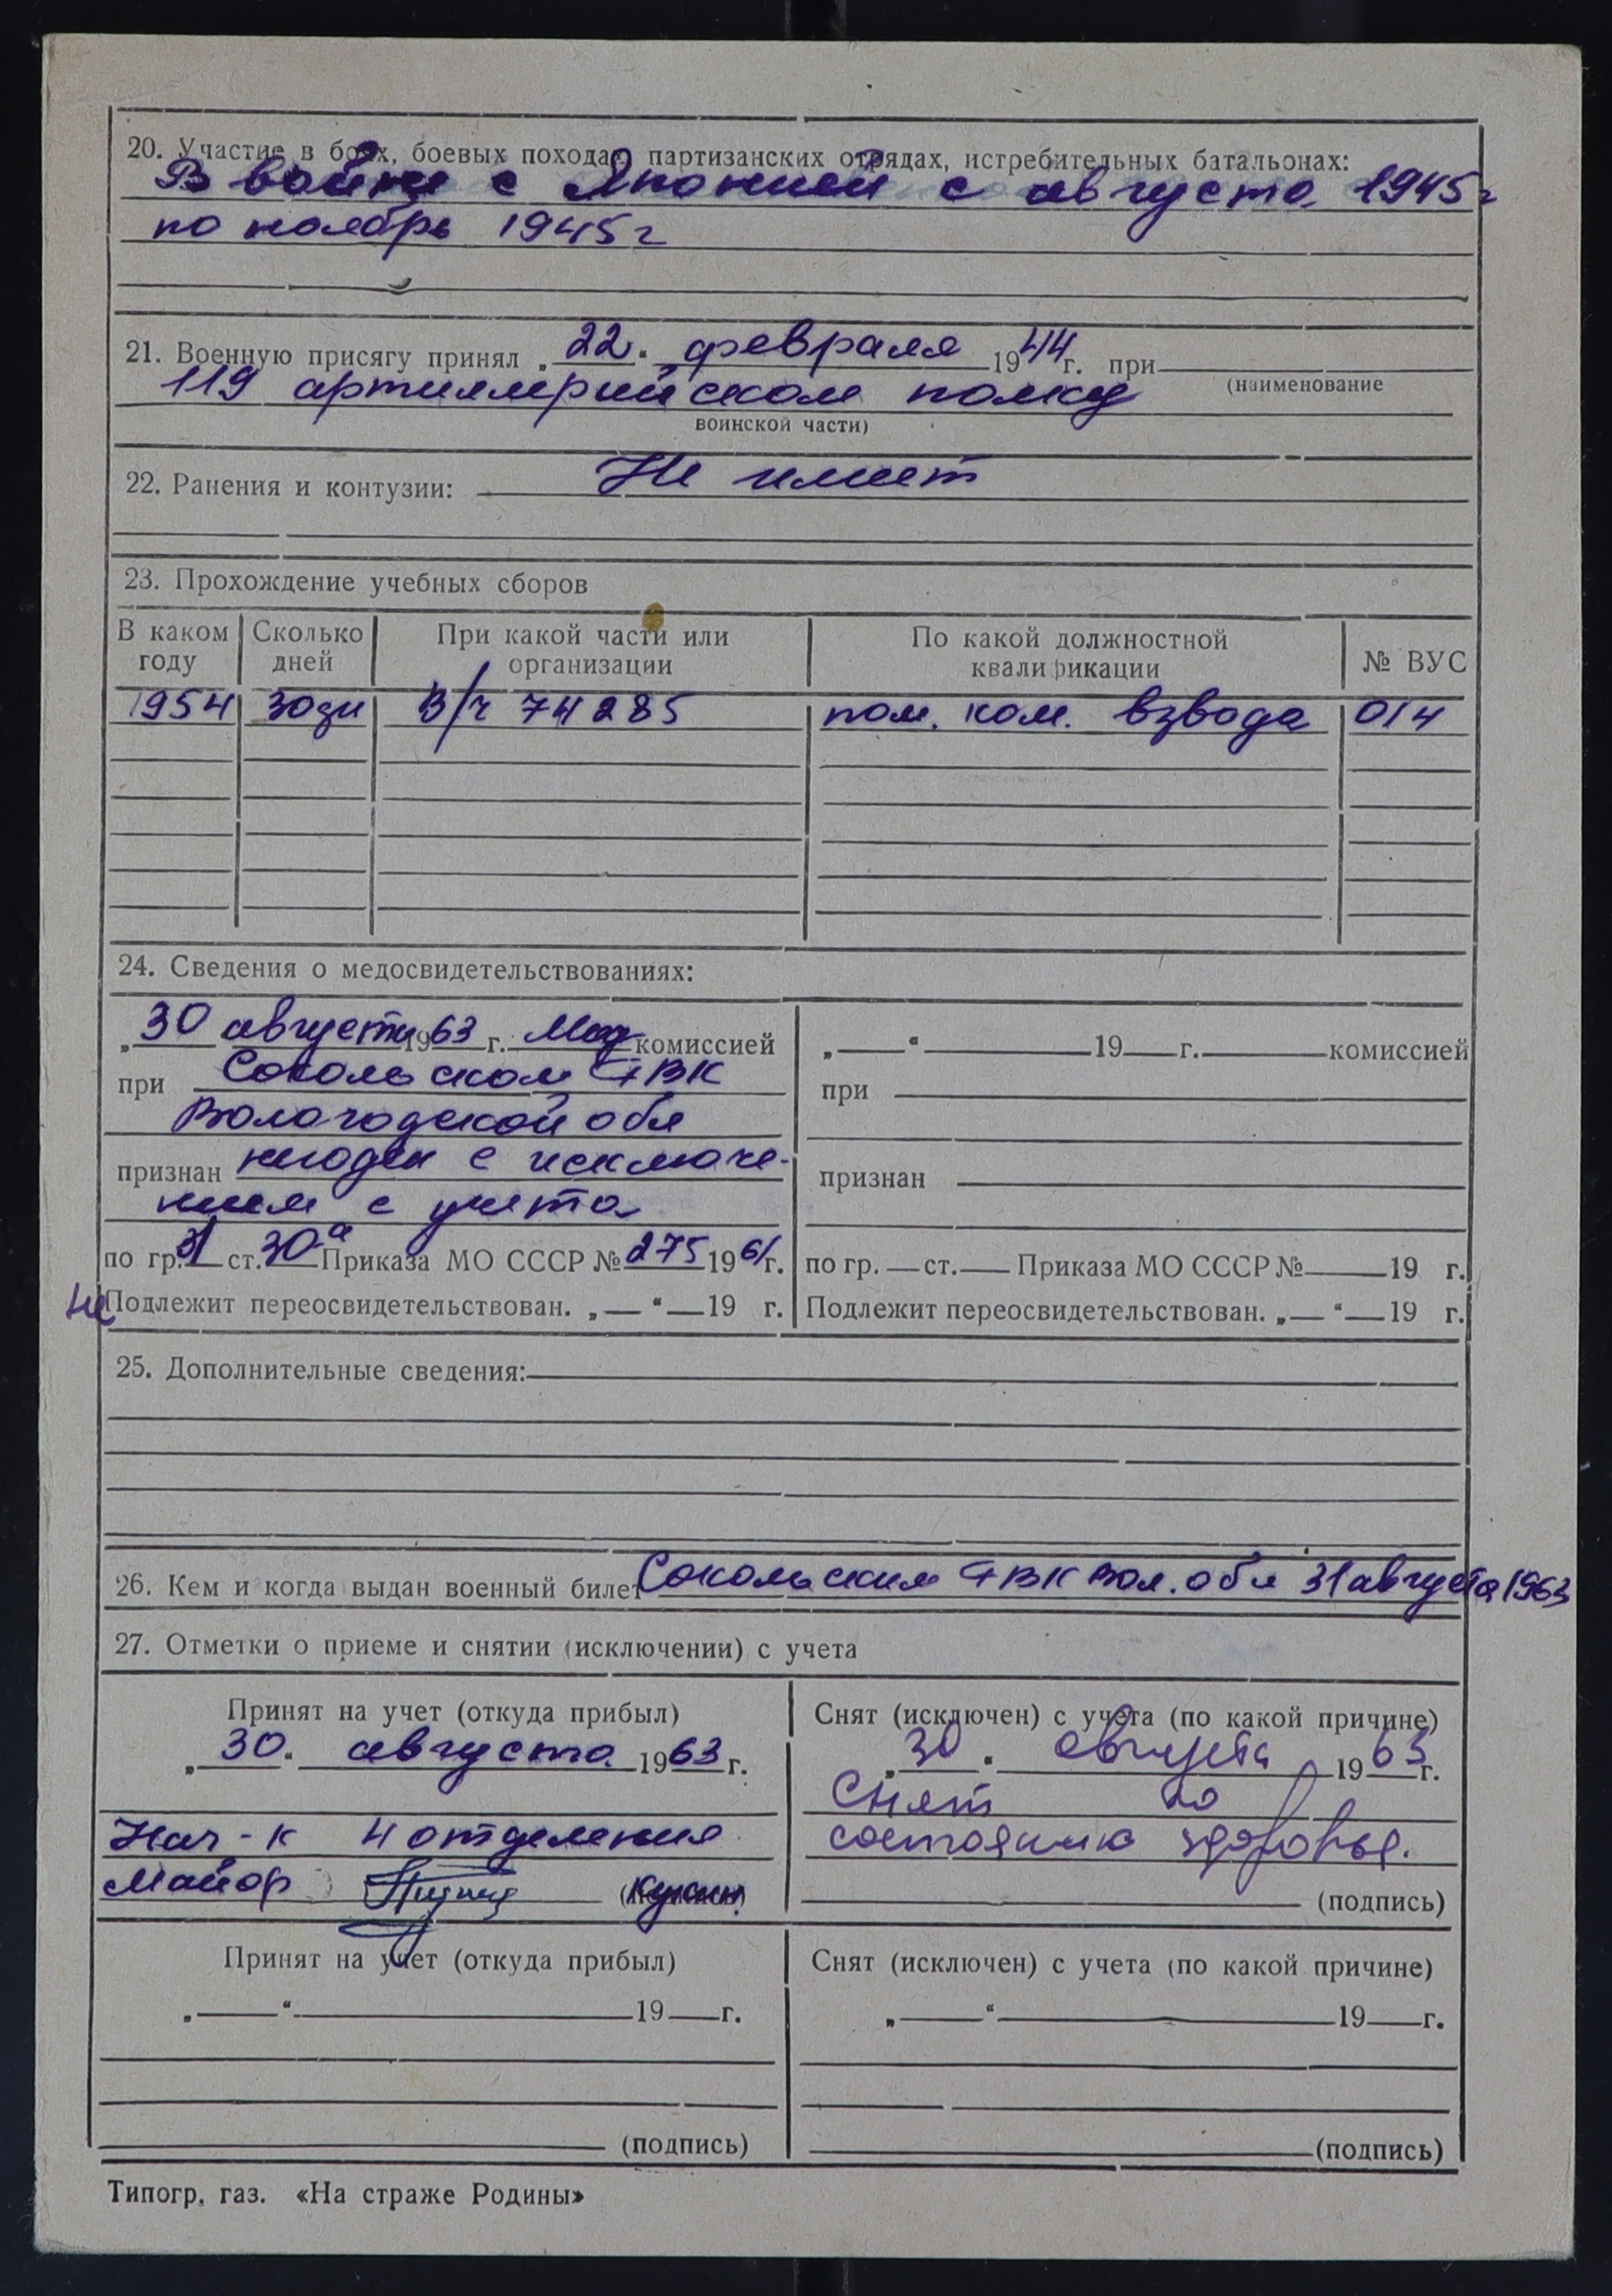 20. Участие в боях, боевых походах, партизанских отрядах, истребительных батальонах:
В войне с Японией с августа 1945 г
по ноябрь 1945 г
21. Военную присягу принял „22" февраля 1944 г. при
119 артиллерийском полку (наименование
воинской части)
22. Ранения и контузии: Не имеет
23. Прохождение учебных сборов
В каком году Сколько дней При какой части или организации По какой должностной квалификации № ВУС
1954 30 дн В/ч 74285 пом. ком. взвода 014
24. Сведения о медосвидетельствованиях:
„30 августа 1963 г. Мед комиссией
при Сокольском ГВК
Вологодской обл
признан негоден с исключе-
нием с учета
по гр. 3/1 ст. 30ª Приказа МО СССР № 275 1961 г.
Не Подлежит переосвидетельствован. „ " 19 г.
„ " 19 г. комиссией
при
признан
по гр. ст. Приказа МО СССР № 19 г.
Подлежит переосвидетельствован. „ " 19 г.
25. Дополнительные сведения:
26. Кем и когда выдан военный билет Сокольским ГВК Вол. обл 31 августа 1963
27. Отметки о приеме и снятии (исключении) с учета
Принят на учет (откуда прибыл)
„30" августа 1963 г.
Нач-к 4 отделения
Майор
Снят (исключен) с учета (по какой причине)
„30" августа 1963 г.
Снят по
состоянию здоровья.
(подпись)
Принят на учет (откуда прибыл)
„ " 19 г.
(подпись)
Снят (исключен) с учета (по какой причине)
„ " 19 г.
(подпись)
Типогр. газ. «На страже Родины»